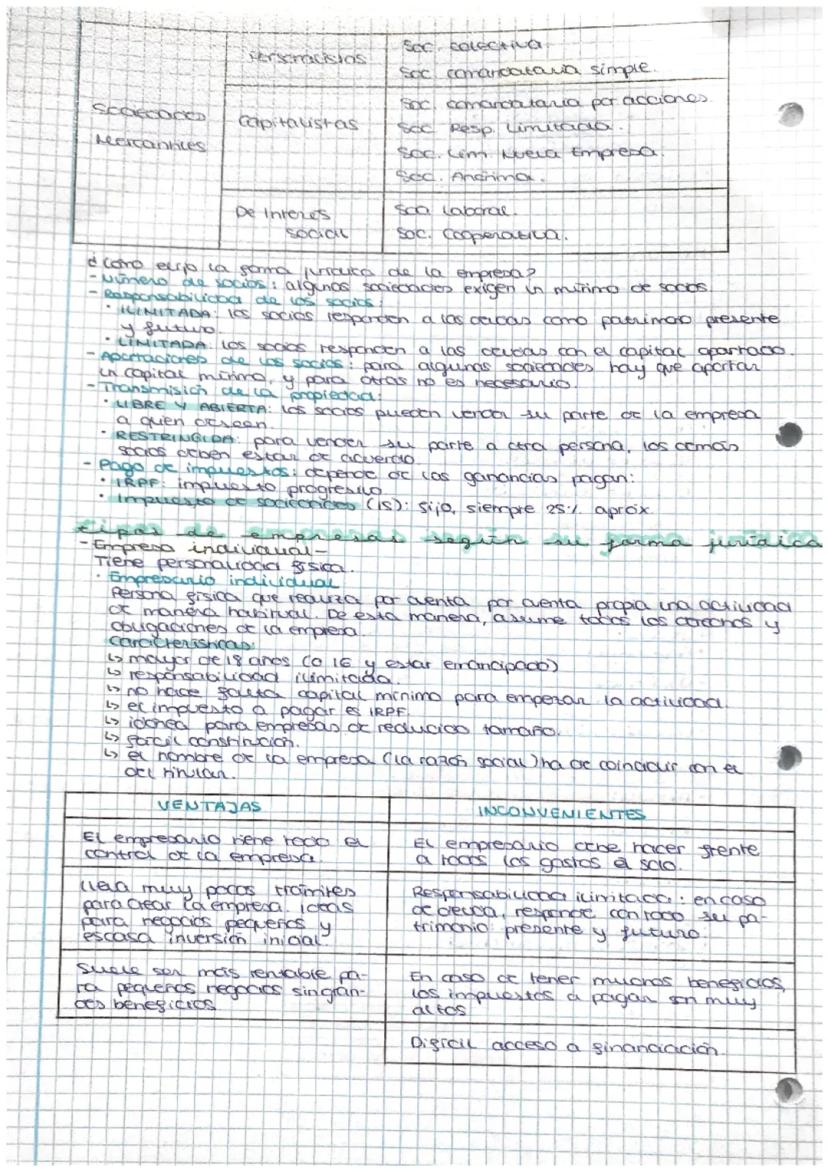 Sociedades Mercantiles
Personalistas
Soc. colectiva
Soc. comandataria simple.
Capitalistas
Soc. comandataria por acciones
Soc. Resp. Limitada.
Soc. Lim. Nueva Empresa.
Soc. Anónima.
De Interes social
Soc. laboral.
Soc. Cooperativa.
¿Cómo elijo la forma jurídica de la empresa?
- Número de socios: algunas sociedades exigen un mínimo de socios
- Responsabilidad de los socios:
· ILIMITADA: los socios responden a las deudas como patrimonio presente
y futuro.
· LIMITADA: los socios responden a las deudas con el capital aportado.
- Aportaciones de los socios: para algunas sociedades hay que aportar
un capital mínimo, y para otras no es necesario.
- Transmisión de la propiedad:
· LIBRE Y ABIERTA: los socios pueden vender su parte de la empresa
a quien deseen.
· RESTRINGIDA: para vender su parte a otra persona, los demás
socios deben estar de acuerdo.
- Pago de impuestos: depende de las ganancias pagan:
· IRPF: impuesto progresivo
· Impuesto de sociedades (IS): fijo, siempre 25% aprox.
tipos de empresas según su forma jurídica
- Empresa individual -
Tiene personalidad física.
· Empresario individual
Persona física que realiza por cuenta por cuenta propia una actividad
de manera habitual. De esta manera, asume todos los derechos y
obligaciones de la empresa.
Características:
↳ mayor de 18 años (o 16 y estar emancipado)
↳ responsabilidad ilimitada.
↳ no hace falta capital mínimo para empezar la actividad.
↳ el impuesto a pagar es IRPF.
↳ idónea para empresas de reducido tamaño.
↳ fácil constitución.
↳ el nombre de la empresa (la razón social) ha de coincidir con el
del titular.
VENTAJAS
INCONVENIENTES
El empresario tiene todo el
control de la empresa.
El empresario debe hacer frente
a todos los gastos él solo.
Lleva muy pocos trámites
para crear la empresa. Ideas
para negocios pequeños y
escasa inversión inicial.
Responsabilidad ilimitada: en caso
de deuda, responde con todo su pa-
trimonio presente y futuro.
Suele ser más rentable pa-
ra pequeños negocios sin gran-
des beneficios.
En caso de tener muchos beneficios,
los impuestos a pagar son muy
altos
Difícil acceso a financiación.